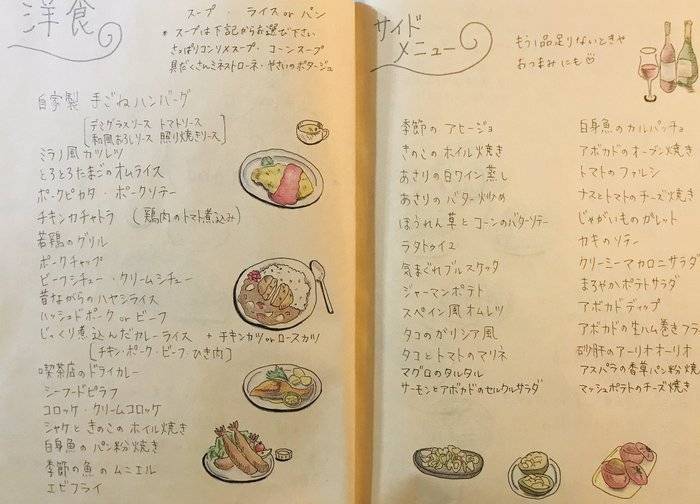 洋食
スープ ・ ライス or パン
* スープは下記からお選び下さい
さっぱりコンソメスープ ・ コーンスープ
具だくさんミネストローネ ・ やさいのポタージュ
自家製 手ごねハンバーグ
[デミグラスソース トマトソース
和風おろしソース 照り焼きソース]
ミラノ風カツレツ
とろとろたまごのオムライス
ポークピカタ ・ ポークソテー
チキンカチャトラ (鶏肉のトマト煮込み)
若鶏のグリル
ポークチャップ
ビーフシチュー ・ クリームシチュー
昔ながらのハヤシライス
ハッシュドポーク or ビーフ
じっくり煮込んだカレーライス + チキンカツ or ロースカツ
[チキン・ポーク・ビーフ・ひき肉]
喫茶店のドライカレー
シーフードピラフ
コロッケ ・ クリームコロッケ
シャケときのこのホイル焼き
白身魚のパン粉焼き
季節の魚のムニエル
エビフライ
サイドメニュー
もう1品足りないときや
おつまみにも♡
季節のアヒージョ
きのこのホイル焼き
あさりの白ワイン蒸し
あさりのバター炒め
ほうれん草とコーンのバターソテー
ラタトゥイユ
気まぐれブルスケッタ
ジャーマンポテト
スペイン風オムレツ
タコのガリシア風
タコとトマトのマリネ
マグロのタルタル
サーモンとアボカドのセルクルサラダ
白身魚のカルパッチョ
アボカドのオーブン焼き
トマトのファルシ
ナスとトマトのチーズ焼き
じゃがいものガレット
カキのソテー
クリーミーマカロニサラダ
まろやかポテトサラダ
アボカドディップ
アボカドの生ハム巻きフラ
砂肝のアーリオオーリオ
アスパラの香草パン粉焼
マッシュポテトのチーズ焼き